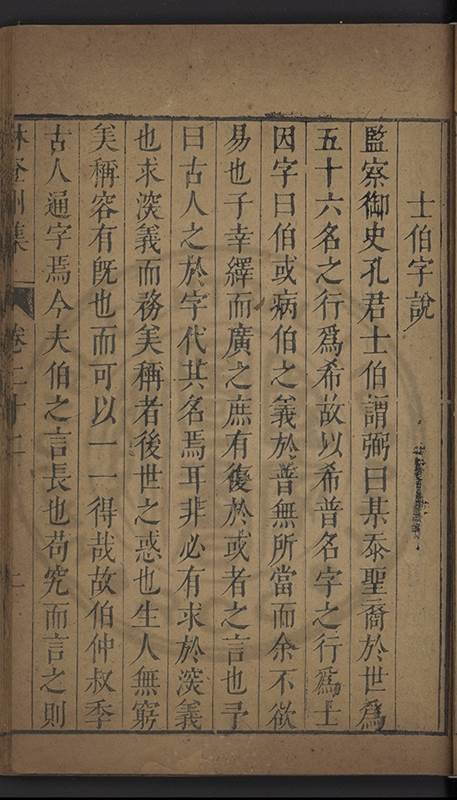 士伯字說
監察御史孔君士伯謂弼曰某忝聖裔於世為
五十六名之行爲希故以希普名字之行爲士
因字曰伯或病伯之義於普無所當而余不欲
易也子幸繹而廣之庶有復於或者之言也予
曰古人之於字代其名焉耳非必有求於深義
也求深義而務美稱者後世之惑也生人無窮
美稱容有既也而可以一一得哉故伯仲叔季
古人通字焉今夫伯之言長也苟究而言之則
林登州集 卷二十二 二